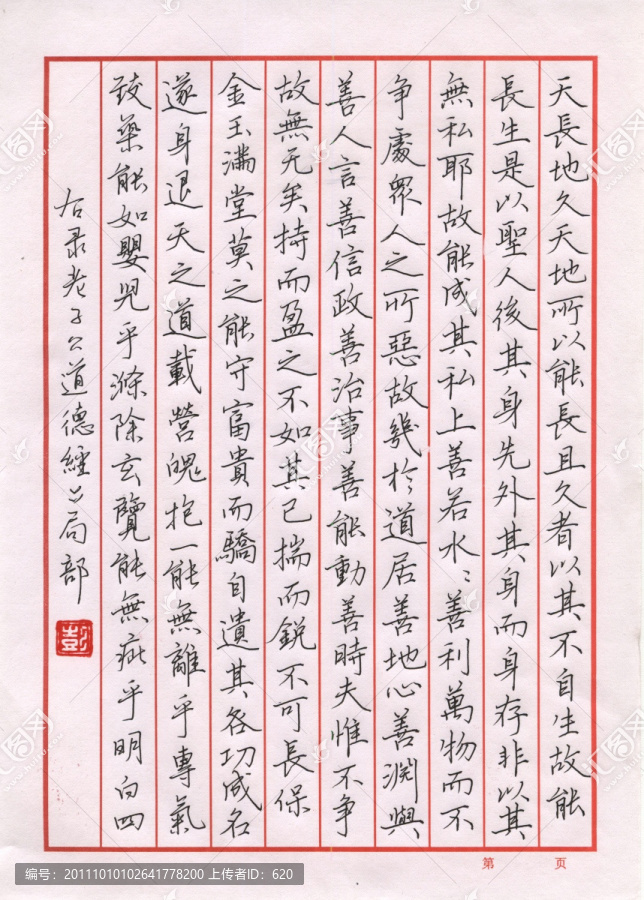 天長地久天地所以能長且久者以其不自生故能
長生是以聖人後其身先外其身而身存非以其
無私耶故能成其私上善若水〻善利萬物而不
争處眾人之所惡故幾於道居善地心善渊與
善人言善信政善治事善能動善時夫惟不争
故無尤矣持而盈之不如其已揣而銳不可長保
金玉滿堂莫之能守富貴而驕自遺其咎功成名
遂身退天之道載營魄抱一能無離乎專氣
致柔能如嬰兒乎滌除玄覽能無疵乎明白四
右录老子《道德經》局部
彭
第 页
编号：20111010102641778200 上传者ID：620